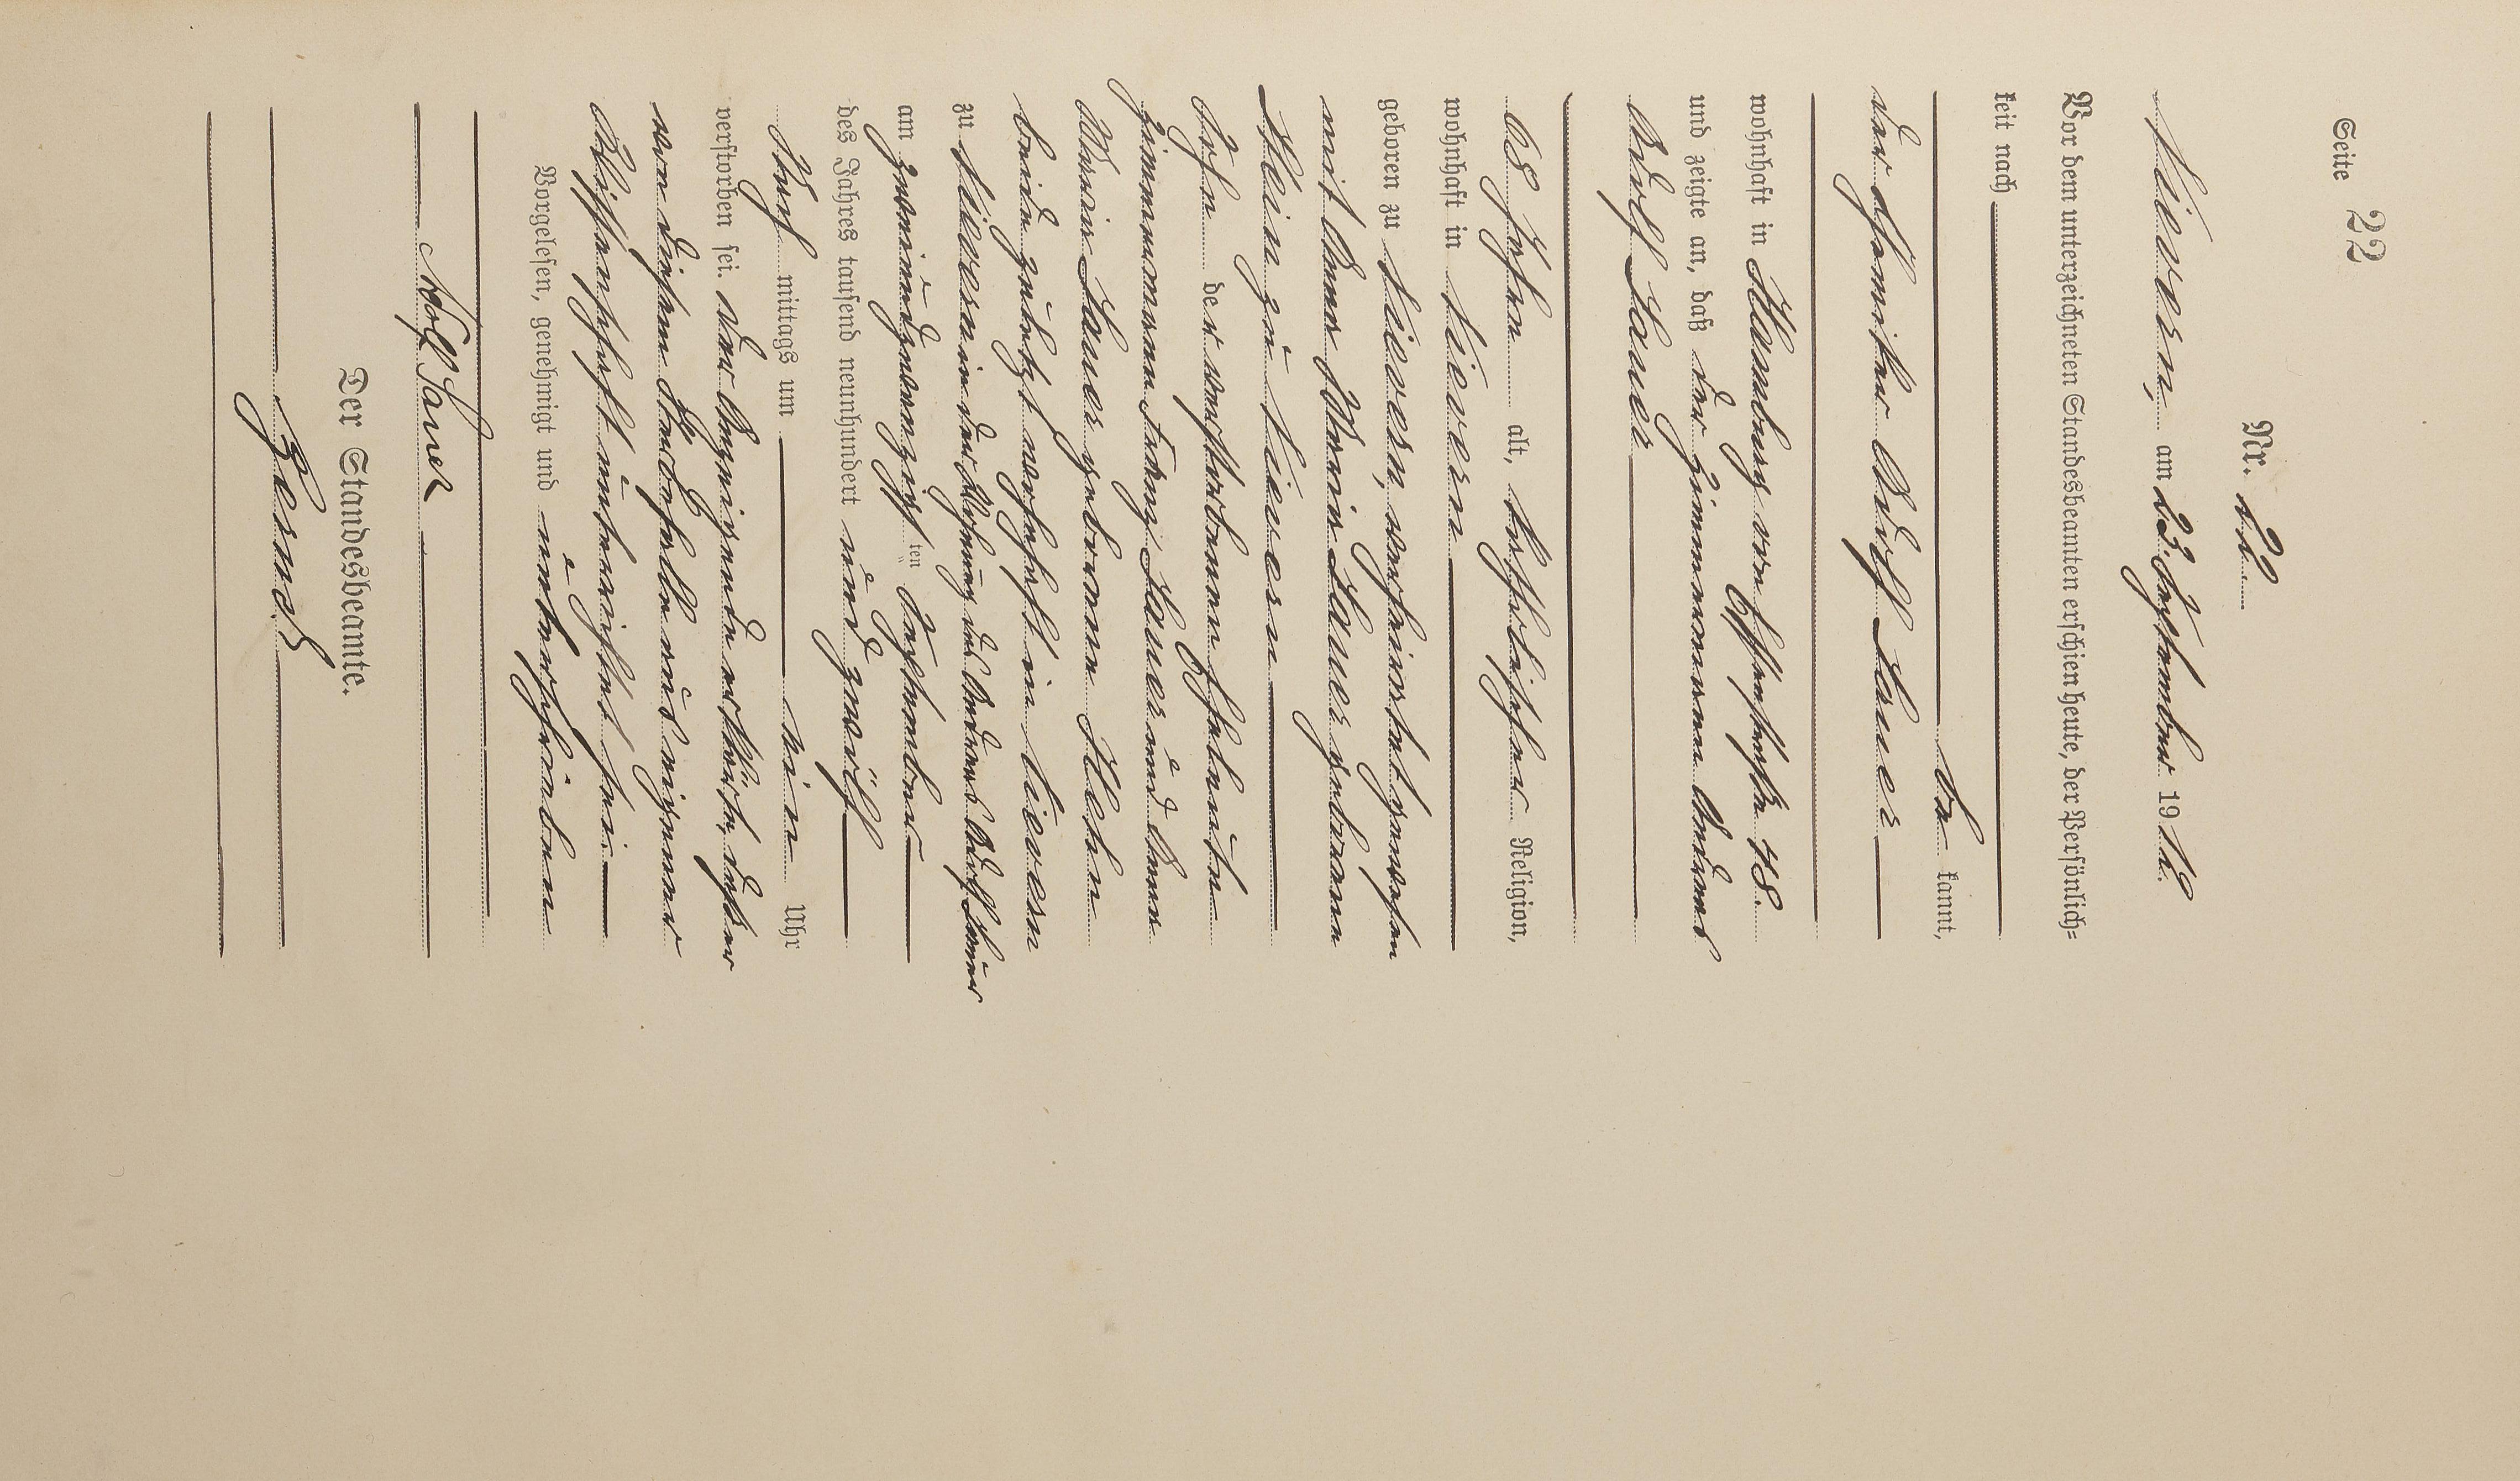 Seite 22
Nr. 22.
Nievern, am 23. September 1912.
Vor dem unterzeichneten Standesbeamten erschien heute, der Persönlich=
keit nach
be kannt,
der Chemiker Adolf Sauer
wohnhaft in Hamburg von Essenstraße 78.
und zeigte an, daß der Zimmermann Andreas
Adolf Sauer
68 Jahre alt, katholischer Religion,
wohnhaft in Nievern
geboren zu Nievern, verheiratet gewesen
mit Anna Maria Sauer geborene
Klein zu Nievern
Sohn der verstorbenen Eheleute
Zimmermann Sauer und Anna
Maria Sauer geborene Hehn
beide zuletzt wohnhaft in Nievern
zu Nievern in der Wohnung des Andreas Adolf Sauer
am zweiundzwanzigsten ten September
des Jahres tausend neunhundert und zwölf
Nach mittags um ein Uhr
verstorben sei. Der Anzeigende erklärte, daß er
von diesem Sterbefalle aus eigener
Wissenschaft unterrichtet sei.
Vorgelesen, genehmigt und unterschrieben
Adolf Sauer
Der Standesbeamte.